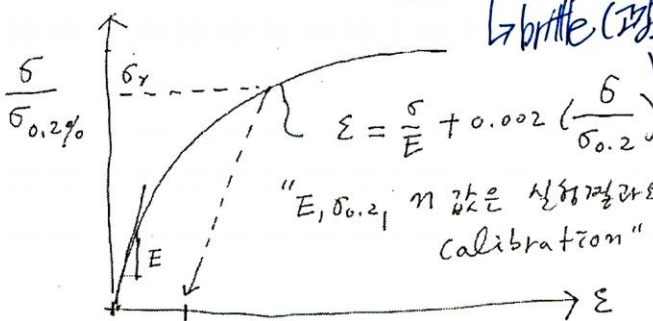 ↳brittle (고강
σ / σ0.2%
σr
ε = σ/E + 0.002 (σ/σ0.2)
"E, σ0.2, n 값은 실험결과로
calibration"
E
ε